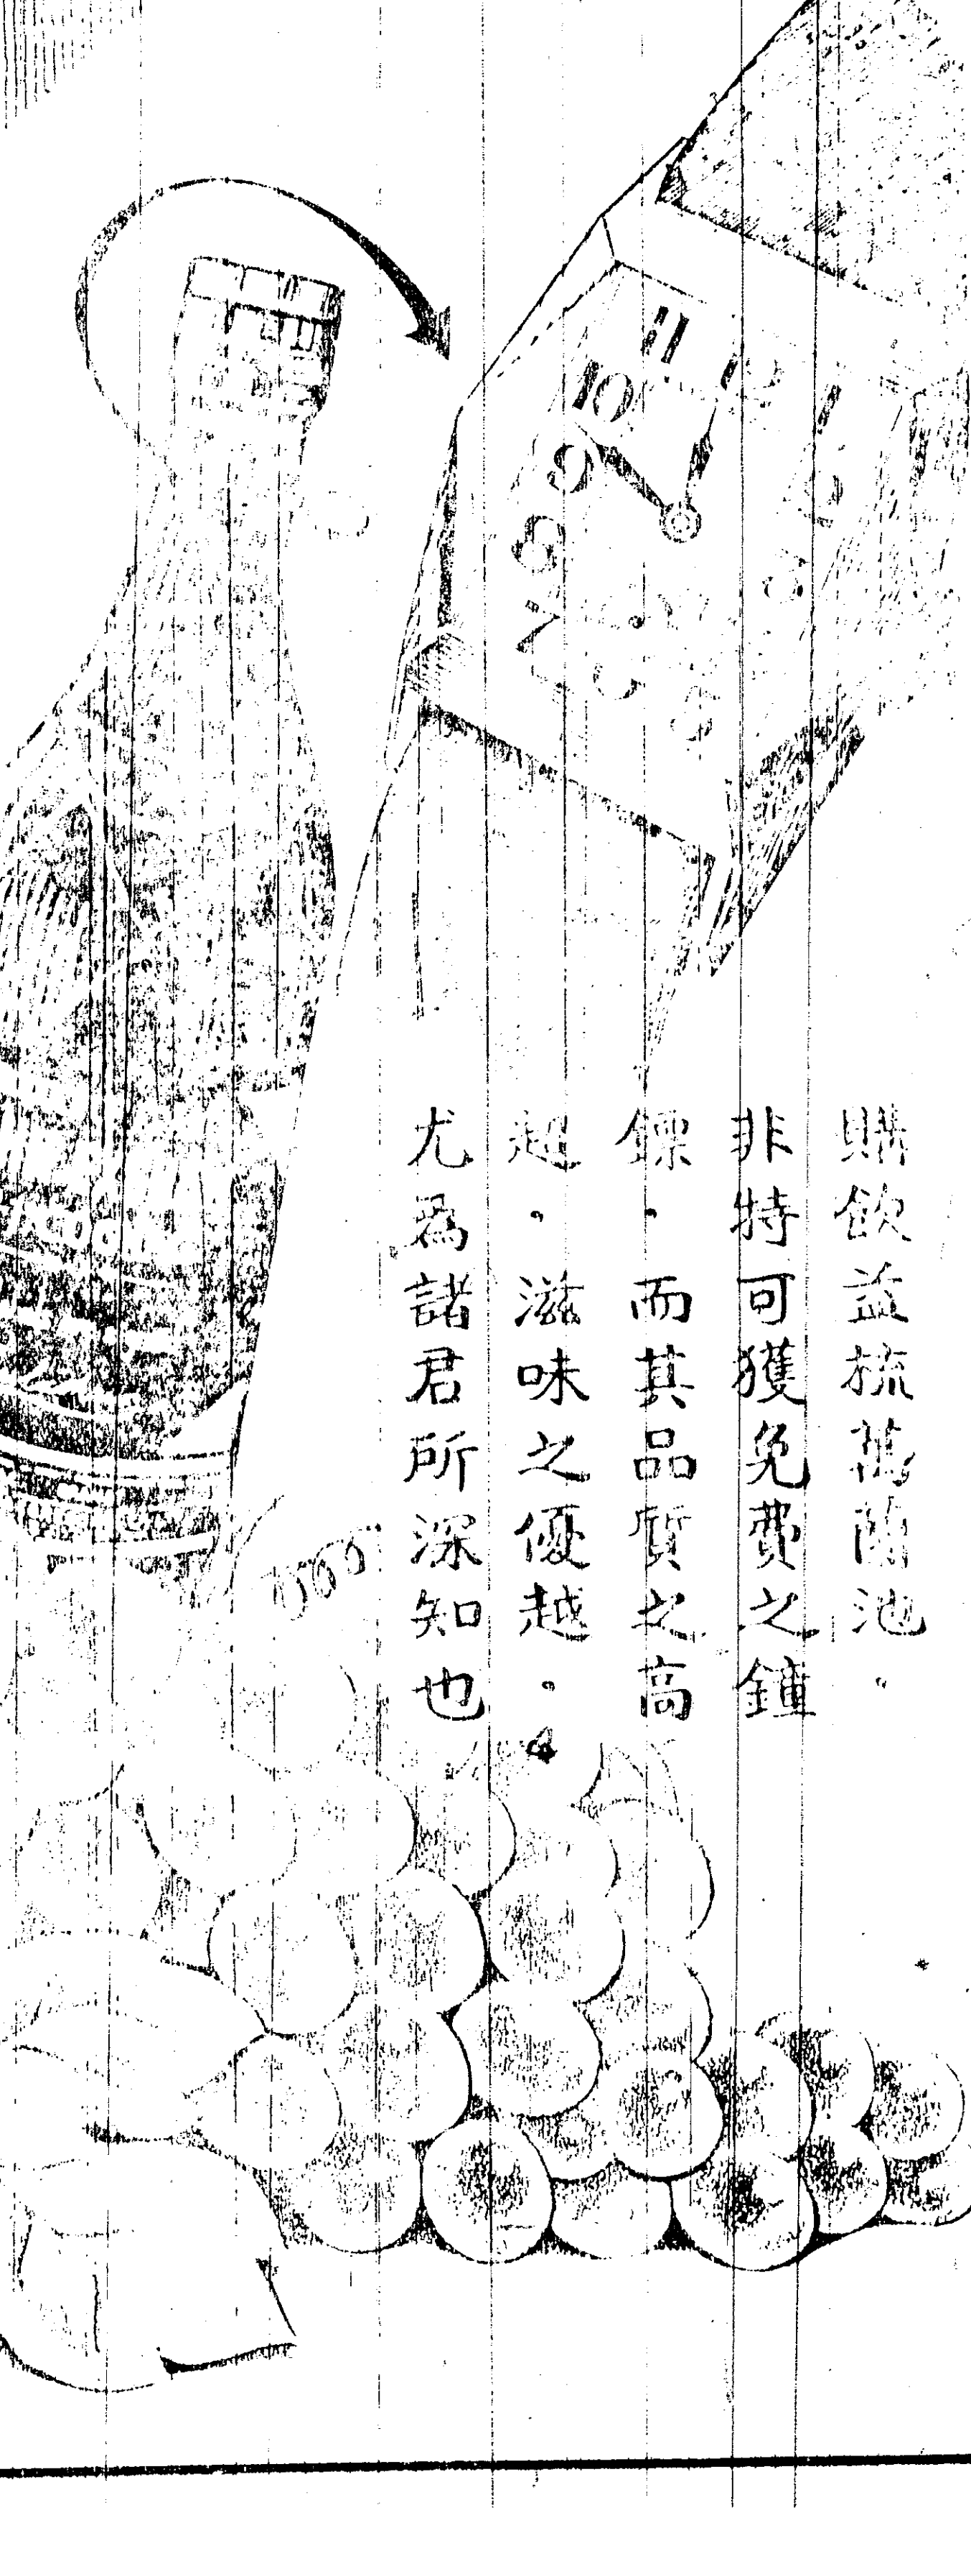 11
10
9
8
7
購飲益梳萬蘭池。
非特可獲免費之鐘
鏢。而其品質之高
超。滋味之優越。
尤為諸君所深知也